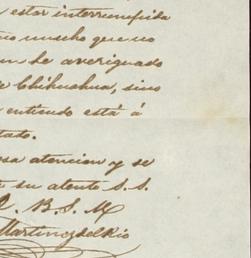 estar interrumpida
mucho que no
se averiguado
Chihuahua, sino
entiendo está á
tado.
sa atencion y se
su atento s. s.
B. S. M
Martinez del Rio